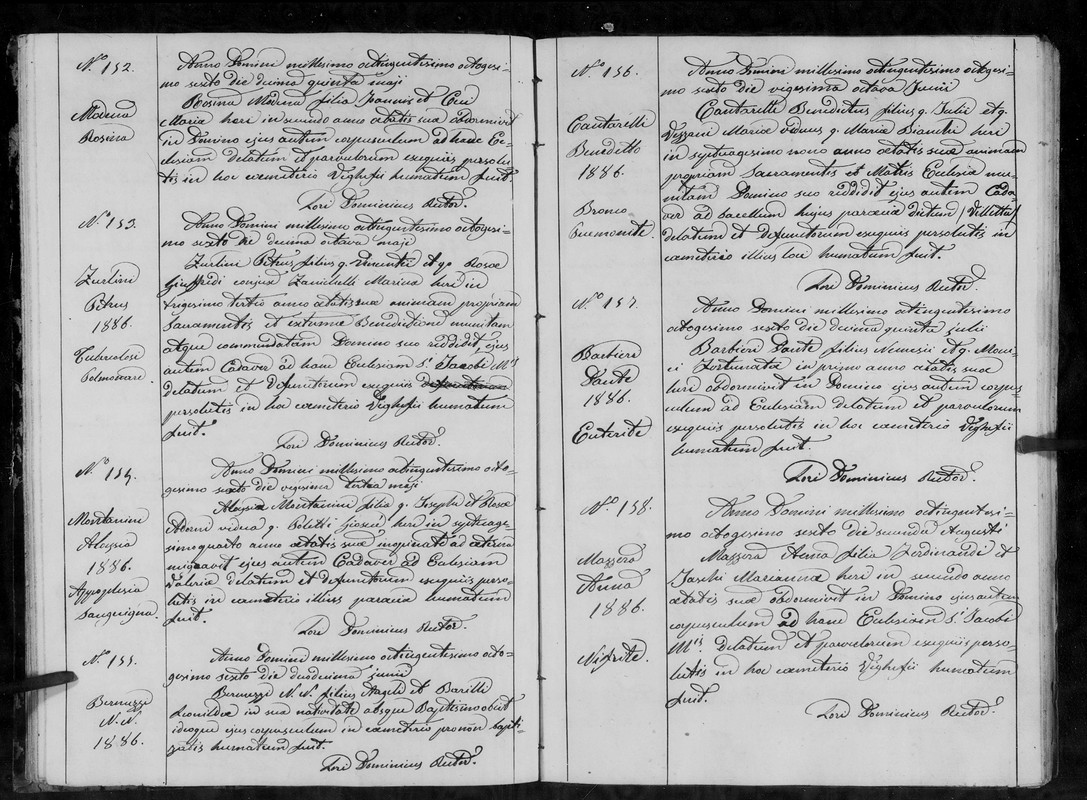 N.º 152.
Modena
Rosina
Anno Domini millesimo octingentesimo octogesi=
mo sexto die decima quinta maji
Rosina Modena filia Joannis et
Maria heri in secundo anno ætatis suæ obdormivit
in Domino ejus autem corpusculum ad hanc Ec=
clesiam delatum et parvulorum exequiis persolu
tis in hoc cæmiterio Vighefii humatum fuit.
Lori Dominicus Rector.
N.º 153.
Zurlini
Petrus
1886.
Tubercolosi
Polmonare.
Anno Domini millesimo octingentesimo octogesi=
mo sexto die decima octava maji
Zurlini Petrus filius q. Vincentii et q. Rosæ
Giuffredi conjux Zanichelli Marina heri in
trigesimo tertio anno ætatis suæ animam propriam
Sacramentis et extrema Benedictione munitam
atque commendatam Domino suo reddidit, ejus
autem Cadaver ad hanc Ecclesiam S.ti Jacobi M.ris
delatum et defunctorum exequiis
persolutis in hoc cæmiterio Vighefii humatum
fuit.
Lori Dominicus Rector.
N.º 154.
Montanini
Aloysia
1886.
Appoplesia
Sanguigna.
Anno Domini millesimo octingentesimo octo=
gesimo sexto die vigesima tertia maji
Aloysia Montanini filia q. Joseph et Rosæ
Adorni vidua q. Poletti heri in septuage
simo quarto anno ætatis suæ ad æterna
migravit ejus autem Cadaver ad Ecclesiam
Valeriæ delatum et defunctorum exequiis perso=
lutis in cæmiterio illius paræcia humatum
fuit.
Lori Dominicus Rector.
N.º 155.
Bernuzzi
N. N.
1886.
Anno Domini millesimo octingentesimo octo=
gesimo sexto die duodecima junii
Bernuzzi N. N. filius Angeli et Barilli
Leonildæ in sua nativitate absque Baptismo obiit
ideoque ejus corpusculum in cæmiterio pro non bapti=
zatis humatum fuit.
Lori Dominicus Rector.
N.º 156.
Cantarelli
Benedetto
1886.
Bronco
Pnemonite.
Anno Domini millesimo octingentesimo octoge=
simo sexto die vigesima octava Junii
Cantarelli Benedictus filius q. Julii et q.
Vezzani Maria viduus q. Mariæ heri
in septuagesimo nono anno ætatis suæ animam
propriam Sacramentis et Matris Ecclesiæ mu=
nitam Domino suo reddidit ejus autem Cada=
ver ad sacellum hujus paræcia dictum
delatum et defunctorum exequiis persolutis in
cæmiterio illius loci humatum fuit.
Lori Dominicus Rector.
N.º 157.
Barbieri
Dante
1886.
Enterite
Anno Domini millesimo octingentesimo
octogesimo sexto die decima quinta julii
Barbieri Dante filius Nemesii et q. Moni=
ci Fortunata in primo anno ætatis suæ
heri obdormivit in Domino ejus autem corpus
culum ad Ecclesiam delatum et parvulorum
exequiis persolutis in hoc cæmiterio Vighefii
humatum fuit.
Lori Dominicus Rector.
N.º 158.
Mazzera
Anna
1886.
Nefrite.
Anno Domini millesimo octingentesi=
mo octogesimo sexto die secunda Augusti
Mazzera Anna filia Ferdinandi et
Marianna heri in secundo anno
ætatis suæ obdormivit in Domino ejus autem
corpusculum ad hanc Ecclesiam S.ti Jacobi
M.ris delatum et parvulorum exequiis perso=
lutis in hoc cæmiterio Vighefii humatum
fuit.
Lori Dominicus Rector.